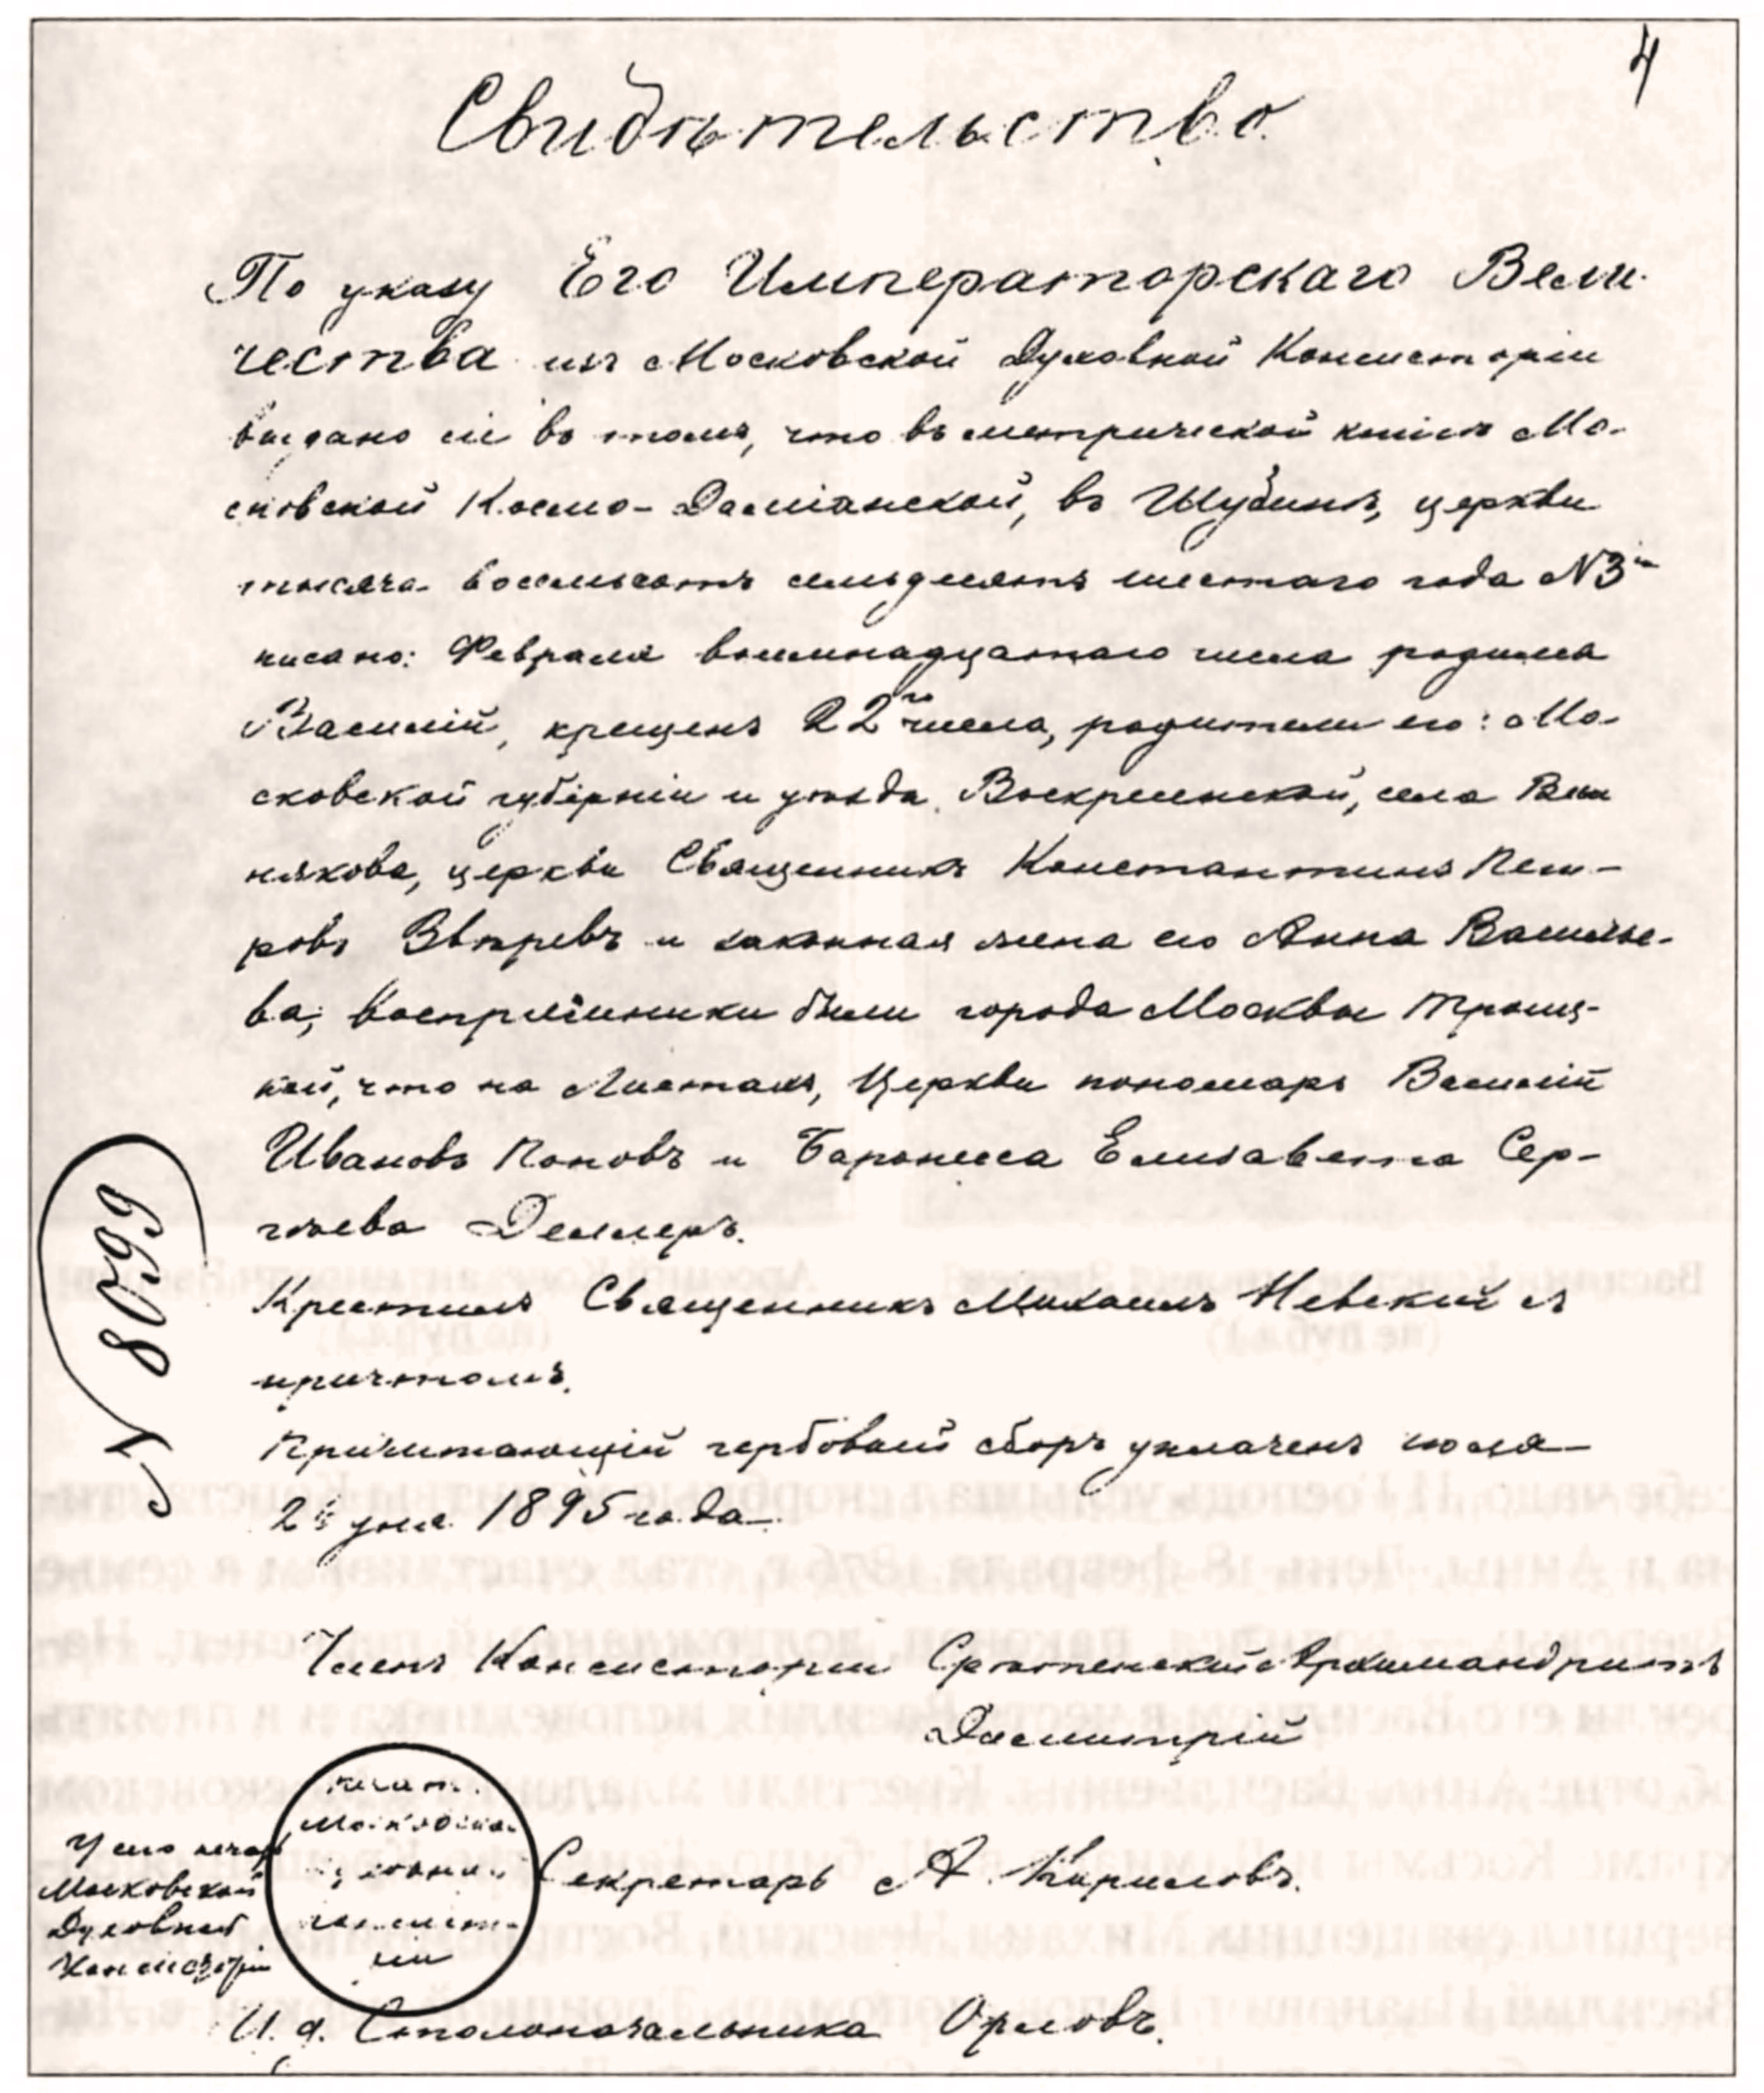 4
Свидѣтельство.
По указу Его Императорскаго Вели-
чества изъ Московской Духовной Консисторіи
выдано сіе въ томъ, что въ метрической книгѣ Мо-
сковской Космо-Даміанской, въ Шубинѣ, церкви
тысяча восемьсотъ семьдесятъ шестаго года №3
писано: Февраля восемнадцатаго числа родился
Василій, крещенъ 22го числа, родители его: Мо-
сковской губерніи и уѣзда, Воскресенской, села Виш
някова, церкви Священникъ Константинъ Пет-
ровъ Звѣревъ и законная жена его Анна Василье-
ва; воспріемники были города Москвы Троиц-
кой, что на Листахъ, Церкви пономарь Василій
Ивановъ Поповъ и Баронесса Елизавета Сер-
гѣева Деллеръ.
Крестилъ Священникъ Михаилъ Невскій съ
причтомъ.
Причитающійся гербовый сборъ уплаченъ Іюля
2 дня 1895 года
№ 8099
Членъ Консисторіи Срѣтенскій Архимандритъ
Димитрій
печат.
Московской
Духовной
консисто-
ріи
У сего печать
Московской
Духовной
Консисторіи
Секретарь А. Кириловъ.
И. д. Столоначальника Орловъ.